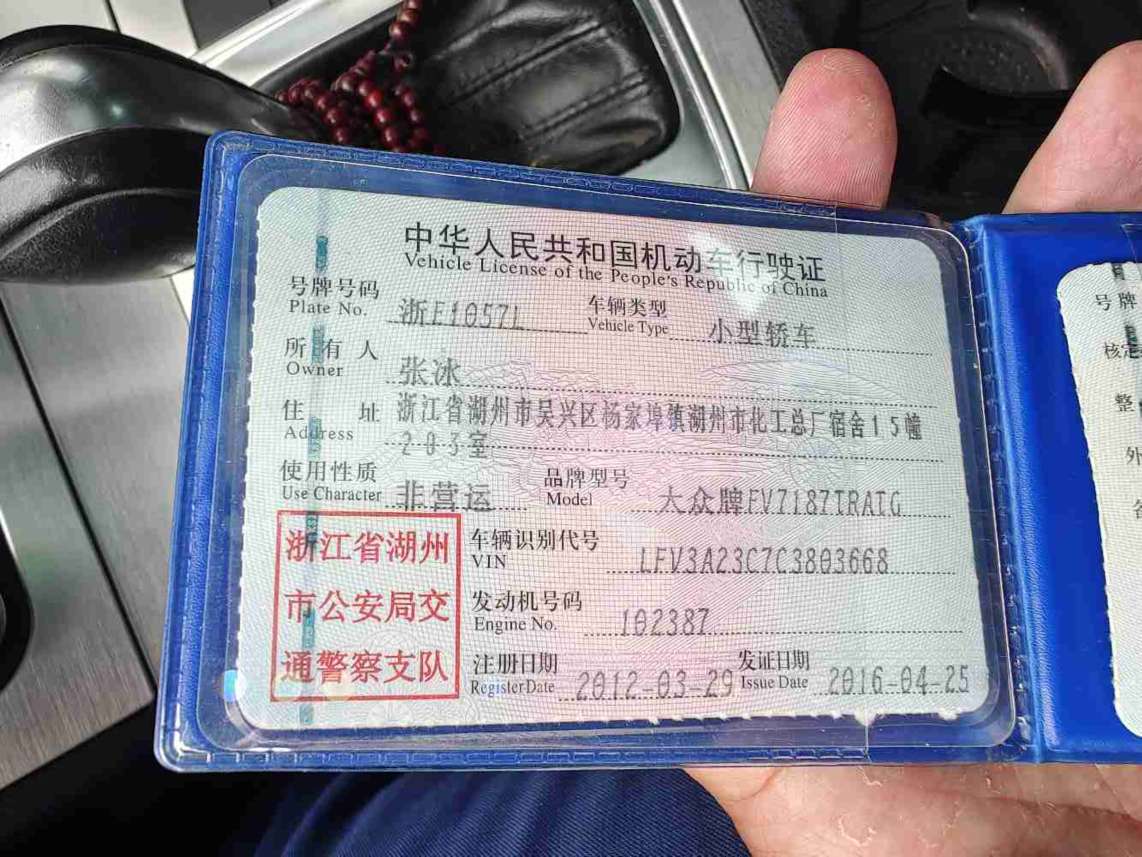 中华人民共和国机动车行驶证
Vehicle License of the People's Republic of China
号牌号码 浙E1057L 车辆类型 小型轿车
Plate No. Vehicle Type
所有人 张冰
Owner
住址 浙江省湖州市吴兴区杨家埠镇湖州市化工总厂宿舍15幢
Address 203室
使用性质 非营运 品牌型号 大众牌FV7187TRATG
Use Character Model
浙江省湖州
市公安局交
通警察支队
车辆识别代号 LFV3A23C7C3803668
VIN
发动机号码 102387
Engine No.
注册日期 2012-03-29 发证日期 2016-04-25
Register Date Issue Date
号牌
核定
整
外